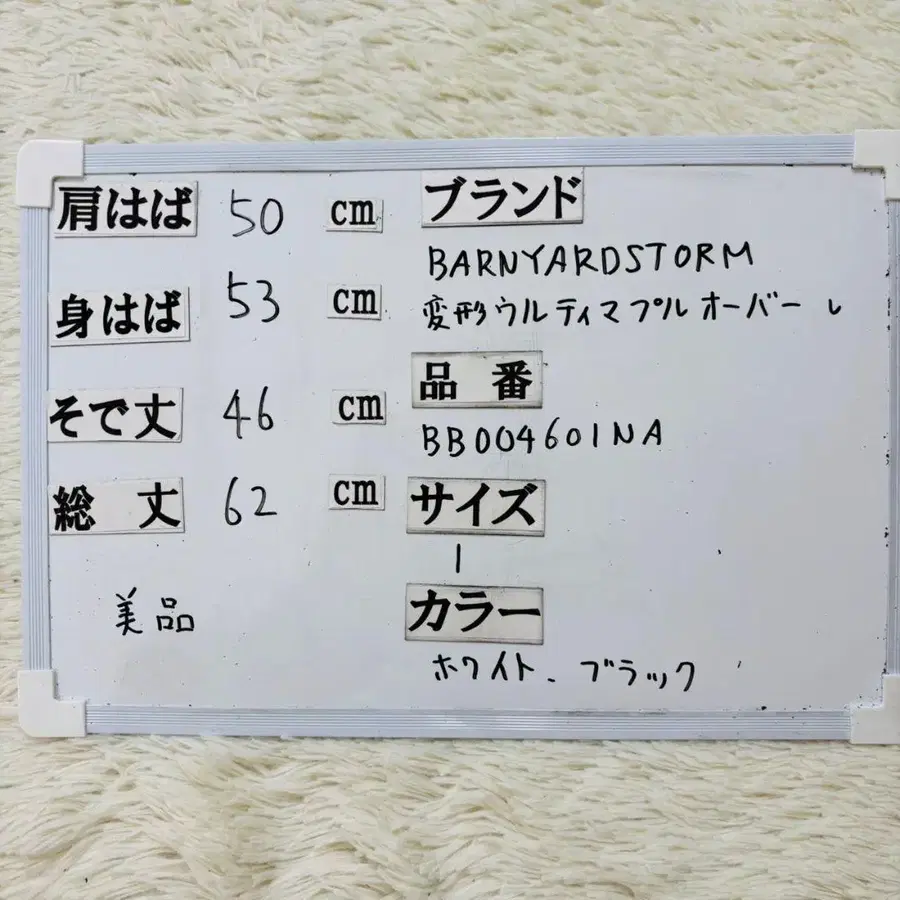 肩はば 50 cm
身はば 53 cm
そで丈 46 cm
総 丈 62 cm
美品
ブランド
BARNYARDSTORM
変形ウルティマプルオーバー
品 番
BB004601NA
サイズ
1
カラー
ホワイト、ブラック